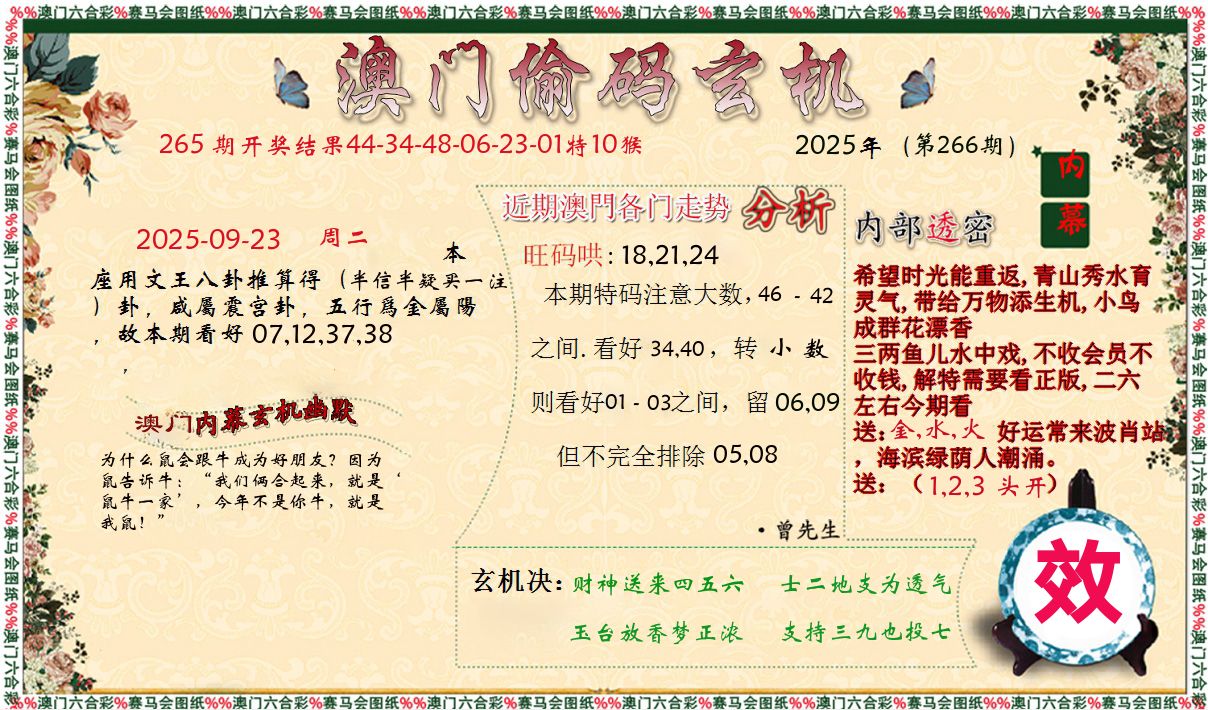 %%澳门六合彩%赛马会图纸%%澳门六合彩%赛马会图纸%%澳门六合彩%赛马会图纸%%澳门六合彩%赛马会图纸%%澳门六合彩%赛马会图纸%%澳门六合彩%赛马会图纸%%
澳门偷码玄机
265期开奖结果44-34-48-06-23-01特10猴
2025年（第266期）
内
幕
2025-09-23 周二
本
座用文王八卦推算得（半信半疑买一注
）卦，咸屬震宫卦，五行爲金屬陽
，故本期看好 07,12,37,38
，
澳门内幕玄机幽默
为什么鼠会跟牛成为好朋友？因为
鼠告诉牛：“我们俩合起来，就是‘
鼠牛一家’，今年不是你牛，就是
我鼠！”
近期澳門各门走势 分析
旺码哄: 18,21,24
本期特码注意大数, 46 - 42
之间. 看好 34,40， 转 小 数
则看好01 - 03之间，留 06,09
但不完全排除 05,08
·曾先生
内部透密
希望时光能重返, 青山秀水育
灵气, 带给万物添生机, 小鸟
成群花漂香
三两鱼儿水中戏, 不收会员不
收钱, 解特需要看正版, 二六
左右今期看
送: 金,水,火 好运常来波肖站
，海滨绿荫人潮涌。
送: （1,2,3 头开）
玄机决: 财神送来四五六 士二地支为透气
玉台放香梦正浓 支持三九也投七
效
%%澳门六合彩%赛马会图纸%%澳门六合彩%赛马会图纸%%澳门六合彩%赛马会图纸%%澳门六合彩%赛马会图纸%%澳门六合彩%赛马会图纸%%澳门六合彩%赛马会图纸%%